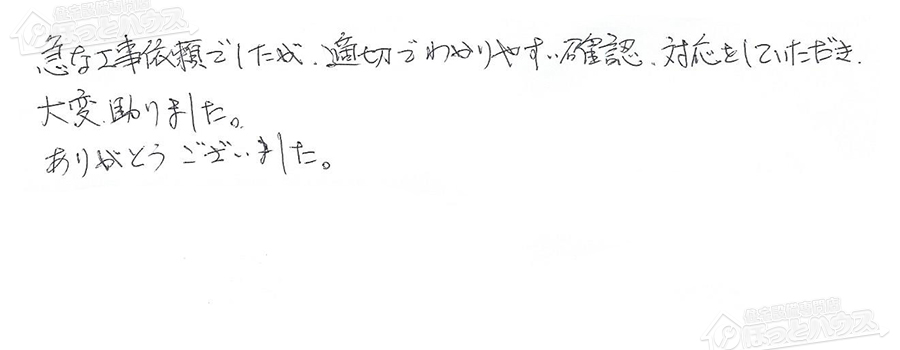 住宅設備専門店
ほっとハウス
急な工事依頼でしたが、適切でわかりやすい確認、対応をしていただき、
大変助りました。
ありがとうございました。
住宅設備専門店
ほっとハウス